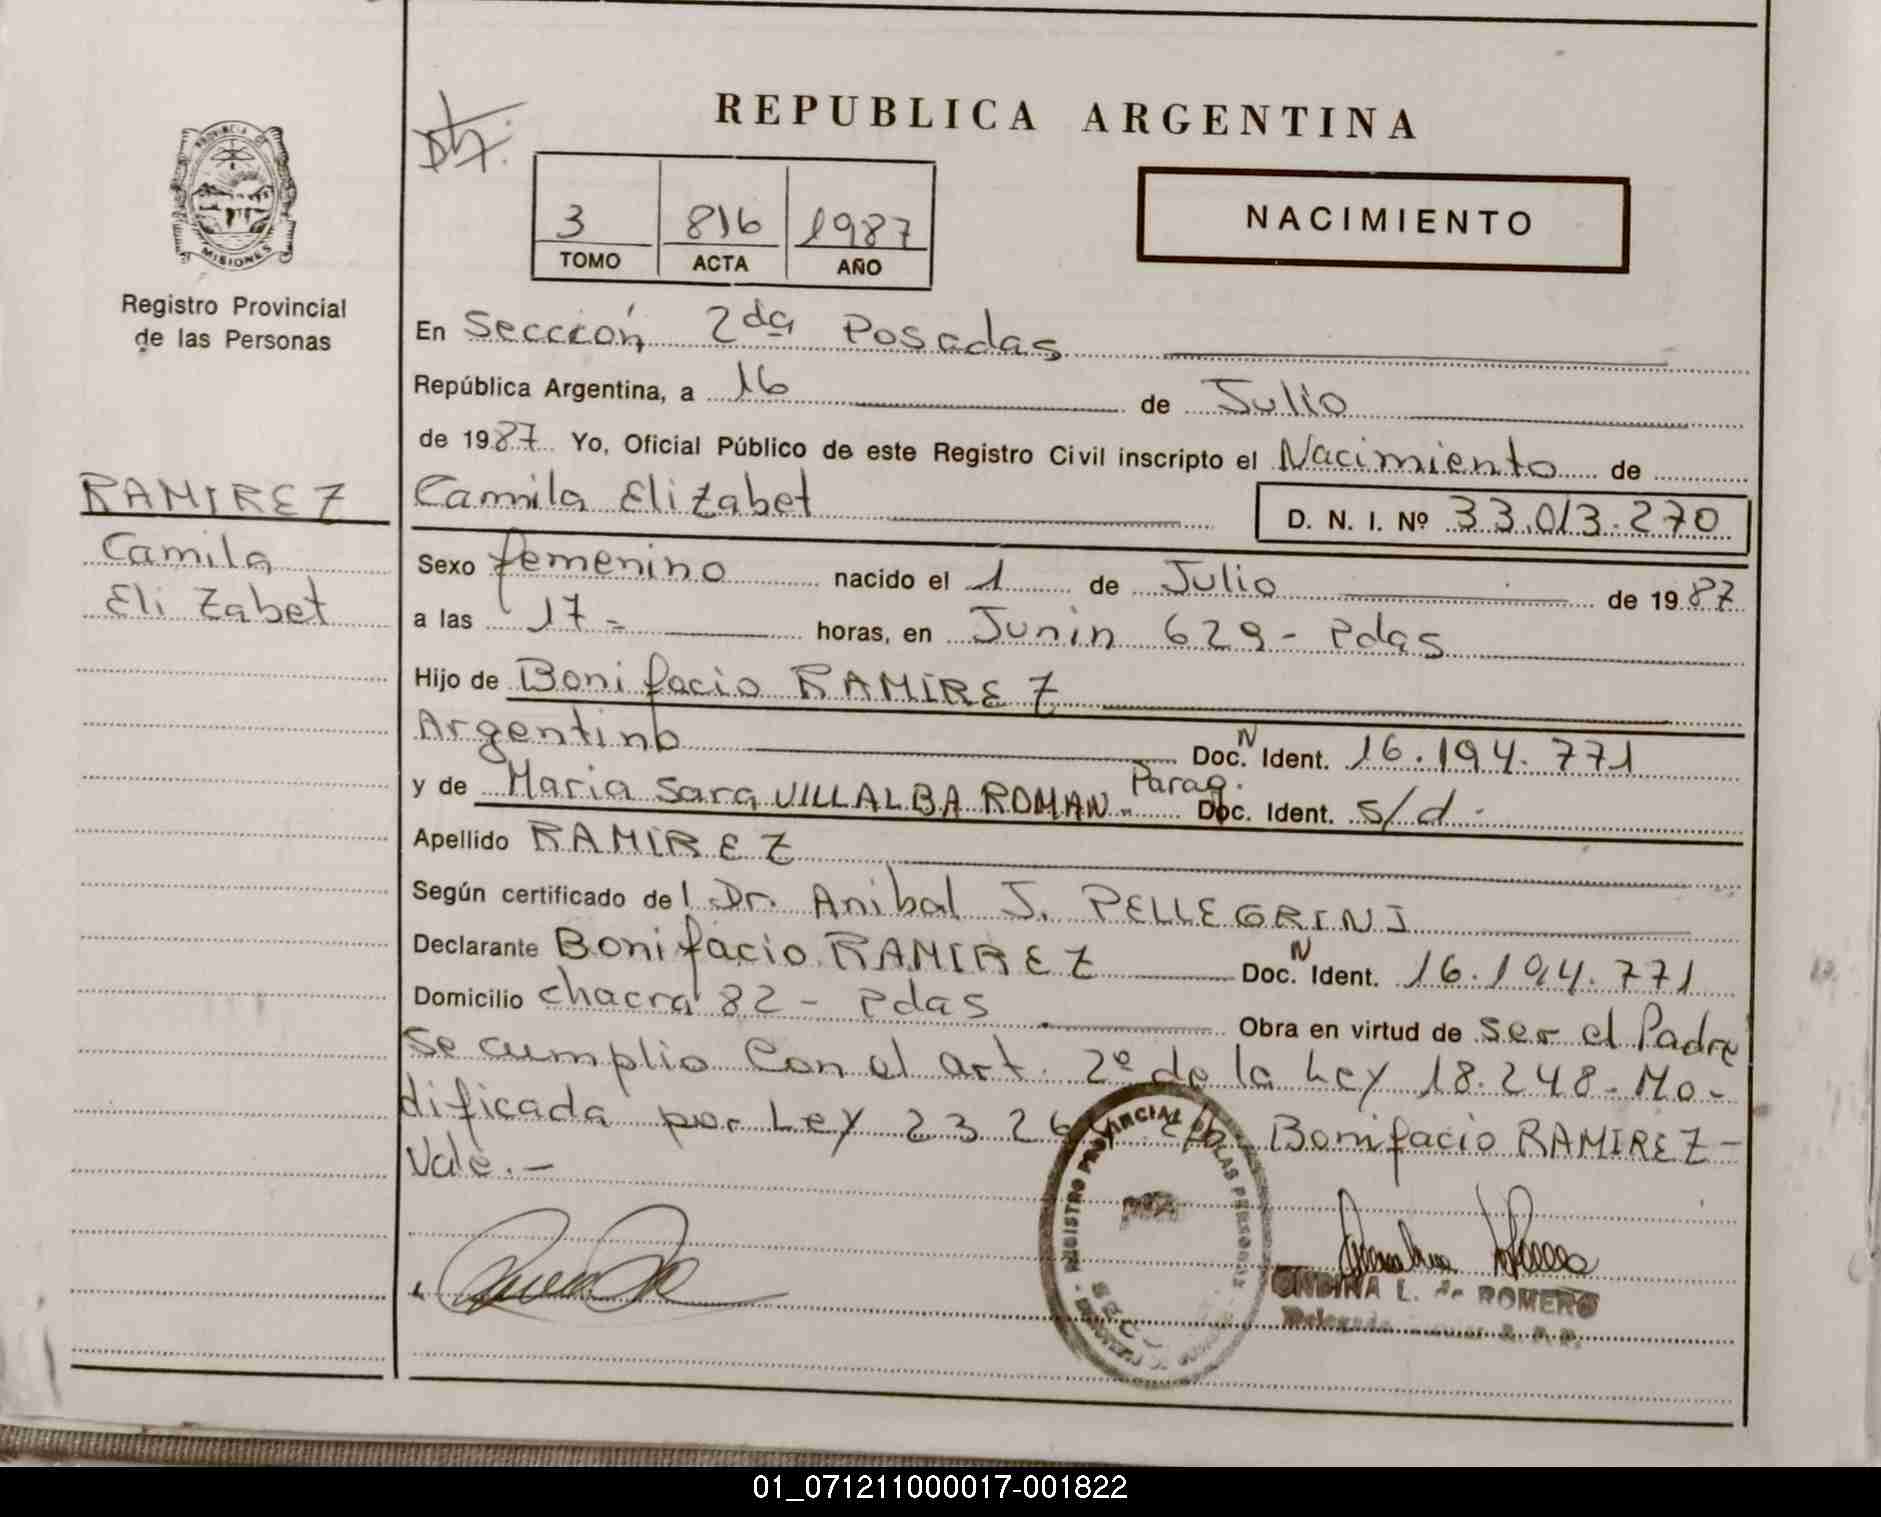 REPUBLICA ARGENTINA
PROVINCIA DE
MISIONES
Registro Provincial
de las Personas
3 816 1987
TOMO ACTA AÑO
NACIMIENTO
En Sección 2da Posadas
República Argentina, a 16 de Julio
de 1987 Yo, Oficial Público de este Registro Civil inscripto el Nacimiento de
RAMIREZ
Camila
Elizabet
Camila Elizabet D. N. I. Nº 33.013.270
Sexo femenino nacido el 1 de Julio de 1987
a las 17 - horas, en Junin 629 - Pdas
Hijo de Bonifacio RAMIREZ
Argentino Doc. N Ident. 16.194.771
y de Maria Sara VILLALBA ROMAN - Parag. Doc. Ident. s/d -
Apellido RAMIREZ
Según certificado del Dr. Anibal J. PELLEGRINI
Declarante Bonifacio RAMIREZ Doc. N Ident. 16.194.771
Domicilio chacra 82 - Pdas Obra en virtud de ser el Padre
Se cumplio con el art. 2º de la Ley 18.248 - Mo-
dificada por Ley 23.26 Bonifacio RAMIREZ -
Vale. -
REGISTRO PROVINCIAL DE LAS PERSONAS
ONDINA L. de ROMERO
01_071211000017-001822